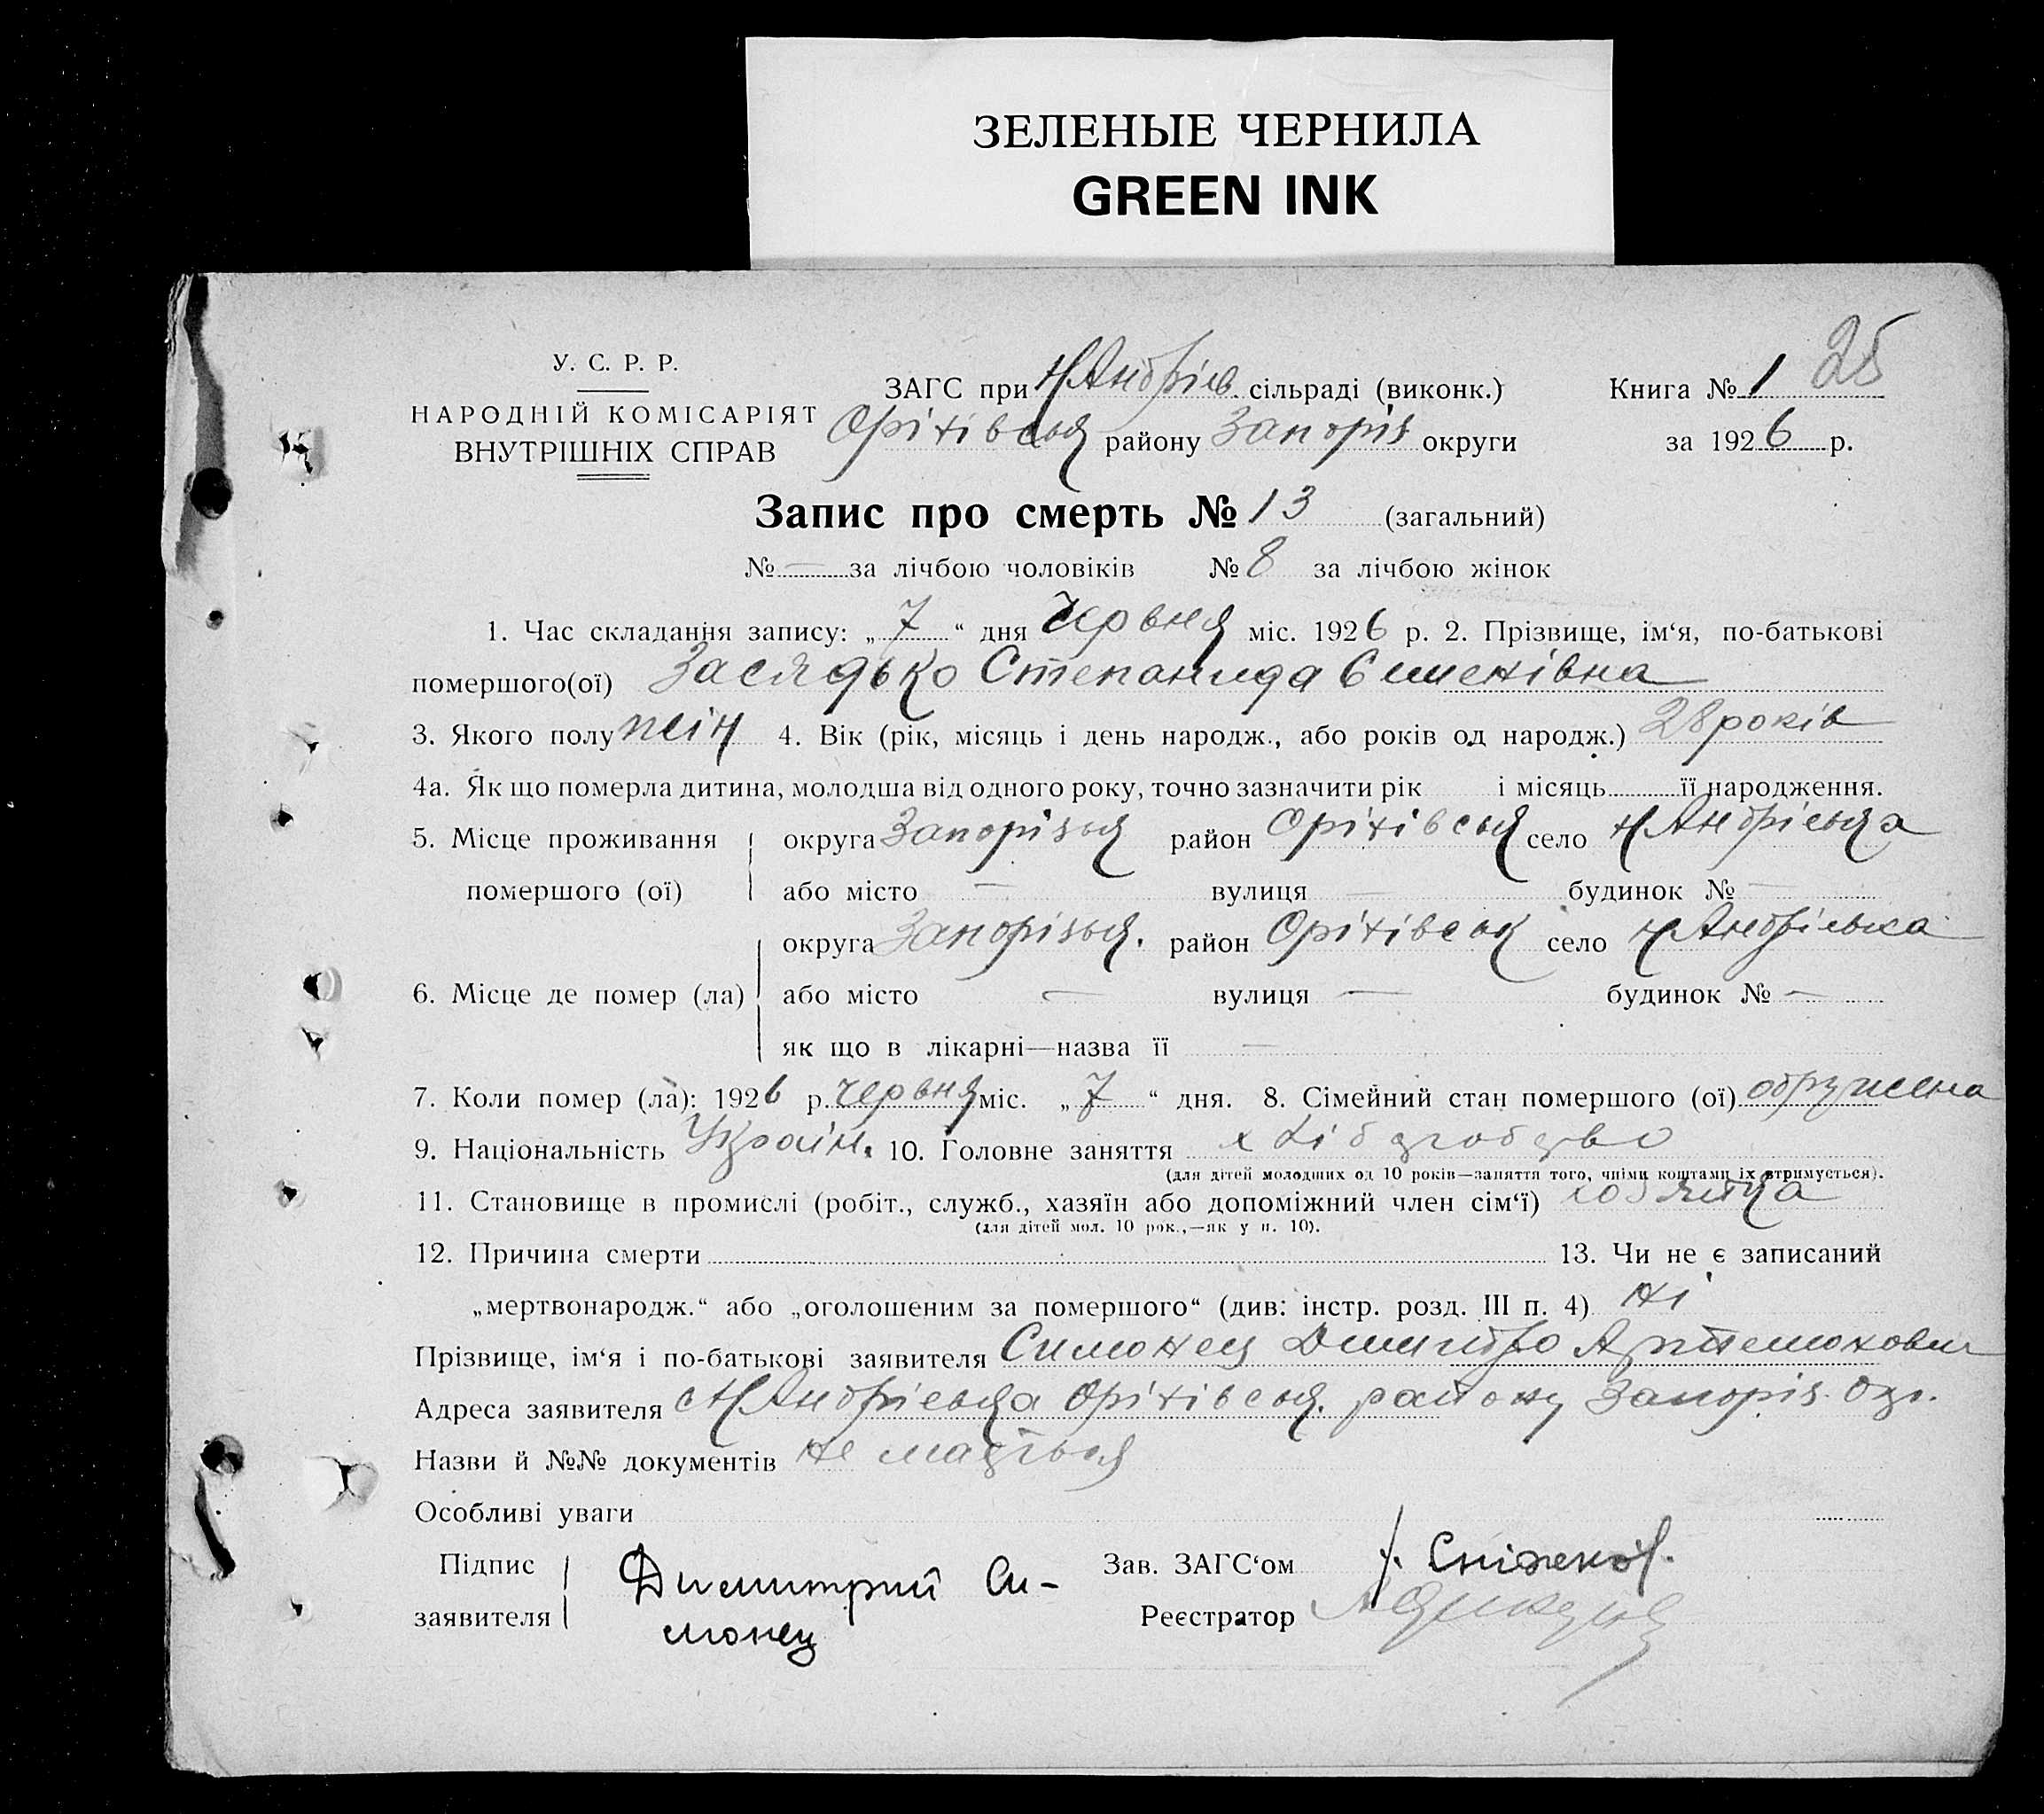 ЗЕЛЕНЫЕ ЧЕРНИЛА
GREEN INK
25
У. С. Р. Р.
НАРОДНІЙ КОМІСАРІЯТ
ВНУТРІШНІХ СПРАВ
ЗАГС при Н Андріів. сільраді (виконк.)
Оріхівськ району Запоріз округи
Книга № 1
за 1926 р.
Запис про смерть № 13 (загальний)
№ — за лічбою чоловіків № 8 за лічбою жінок
1. Час складання запису: „ 7 “ дня Червня міс. 1926 р. 2. Прізвище, ім‘я, по-батькові
помершого(ої) Засядько Степанида Семенівна
3. Якого полу жін 4. Вік (рік, місяць і день народж., або років од народж.) 28 років
4а. Як що померла дитина, молодша від одного року, точно зазначити рік і місяць її народження.
5. Місце проживання помершого (ої)
округа Запорізьк район Оріхівськ село Н Андрієвка
або місто — вулиця — будинок № —
6. Місце де помер (ла)
округа Запорізьк. район Оріхівськ село Н Андрієвка
або місто — вулиця — будинок № —
як що в лікарні—назва її —
7. Коли помер (ла): 1926 р. червня міс. „ 7 “ дня. 8. Сімейний стан помершого (ої) одружена
9. Національність Україн. 10. Головне заняття хлібороб
(для дітей молодших од 10 років—заняття того, чиїми коштами їх втримується).
11. Становище в промислі (робіт., служб., хазяїн або допоміжний член сім‘ї) хозяйка
(для дітей мол. 10 рок.,—як у п. 10).
12. Причина смерти 13. Чи не є записаний
„мертвонародж.“ або „оголошеним за помершого“ (див: інстр. розд. III п. 4) ні
Прізвище, ім‘я і по-батькові заявителя Симонец Дмитро Артемович
Адреса заявителя с Н Андрієвка Оріхівськ. району Запоріз. Окр.
Назви й №№ документів не мається
Особливі уваги
Підпис заявителя Димитрий Си-
монец
Зав. ЗАГС‘ом
Реєстратор